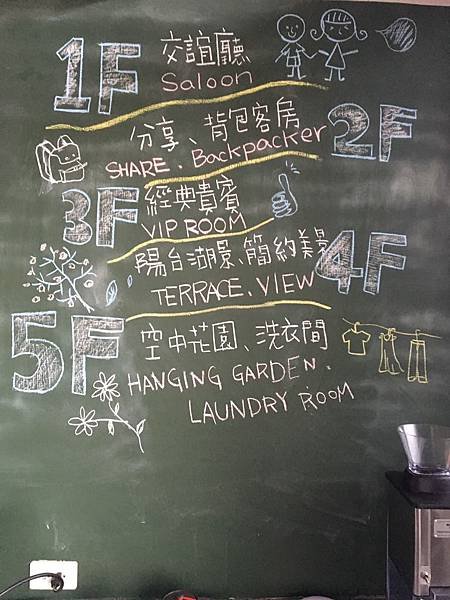 1F 交誼廳
Saloon
分享、背包客房 2F
SHARE. Backpacker
3F 經典貴賓
VIP ROOM
陽台湖景、簡約美景 4F
TERRACE. VIEW
5F 空中花園、洗衣間
HANGING GARDEN.
LAUNDRY ROOM